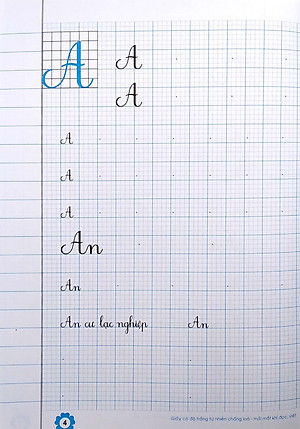 A A
A
A
A
A
An
An
An cư lạc nghiệp An
4
Giấy có độ trắng tự nhiên chống loá, mỏi mắt khi đọc, viết